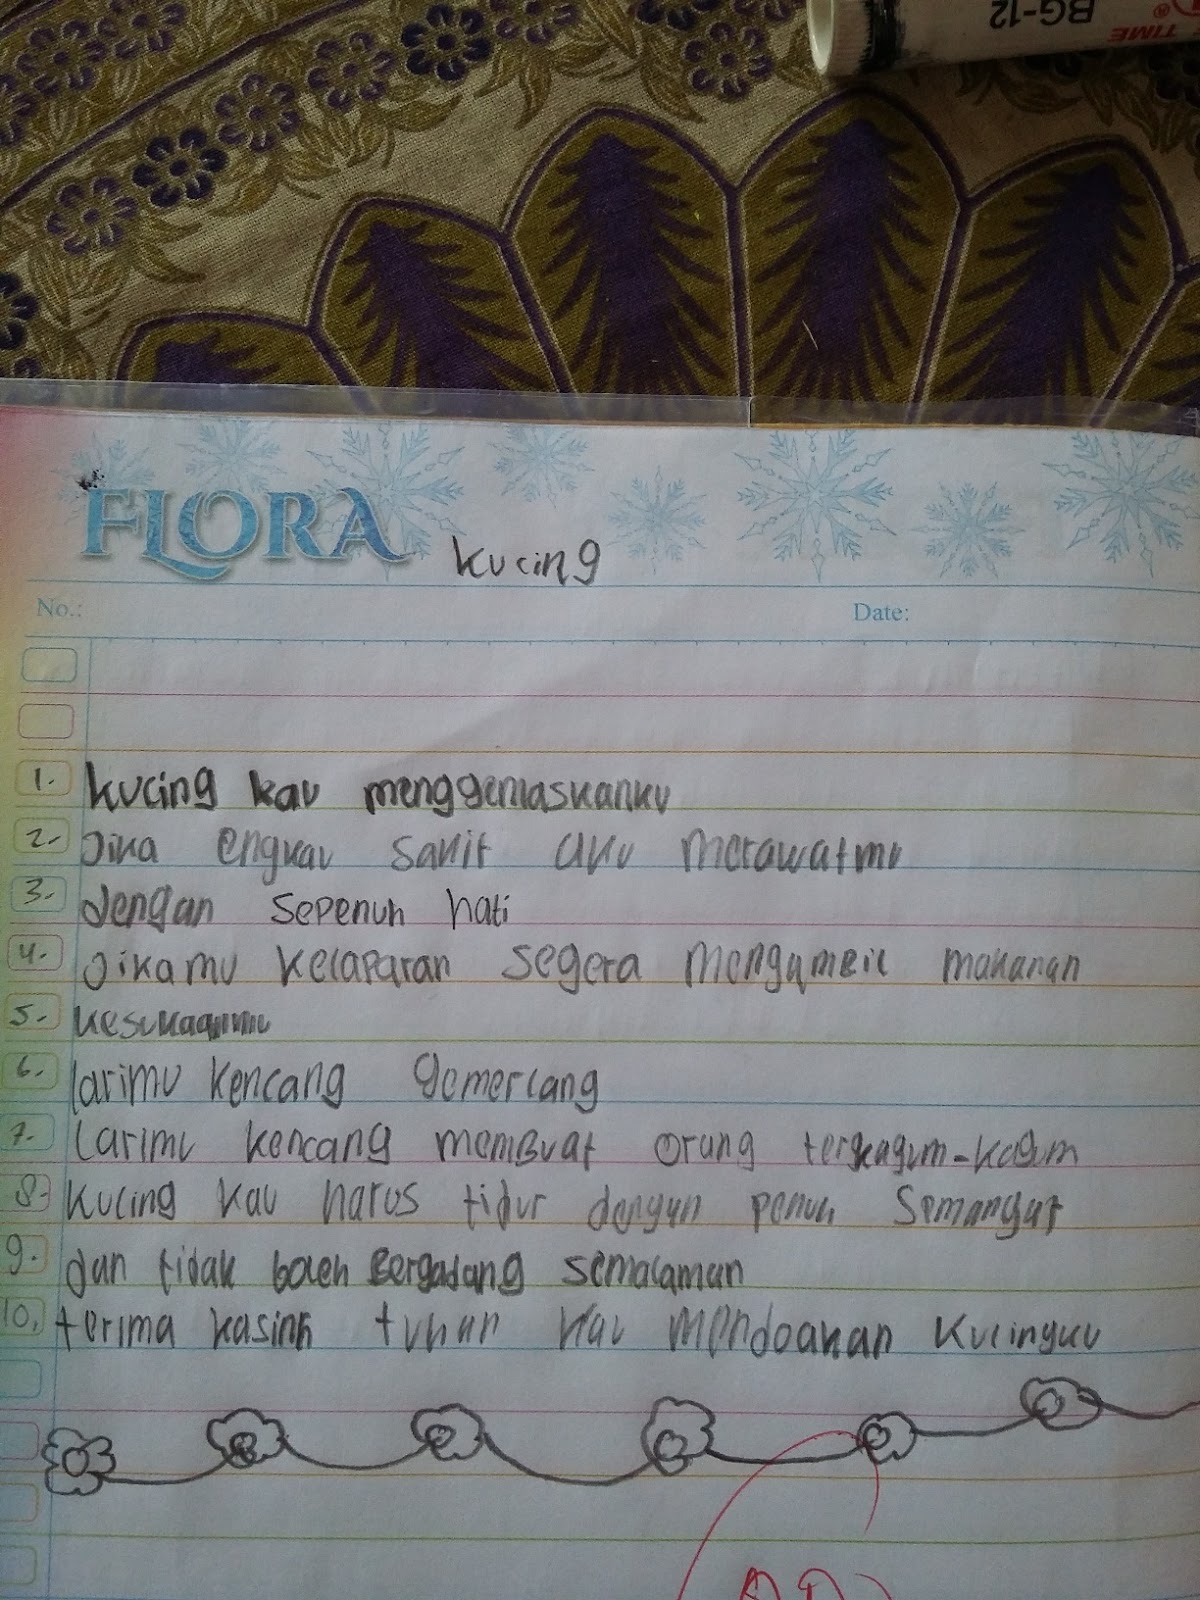 BG-12
TIME
®
FLORA
kucing
No.:
Date:
1. kucing kau menggemaskanku
2. Jika engkau sakit aku merawatmu
3. dengan sepenuh hati
4. Jikamu kelaparan segera mengambil makanan
5. kesukaanmu
6. larimu kencang gemerlang
7. Larimu kencang membuat orang terkagum-kagum
8. kucing kau harus tidur dengan penuh Semangat
9. dan tidak boleh Bergadang semalaman
10. terima kasihh tuhan kau mendoakan kucingku